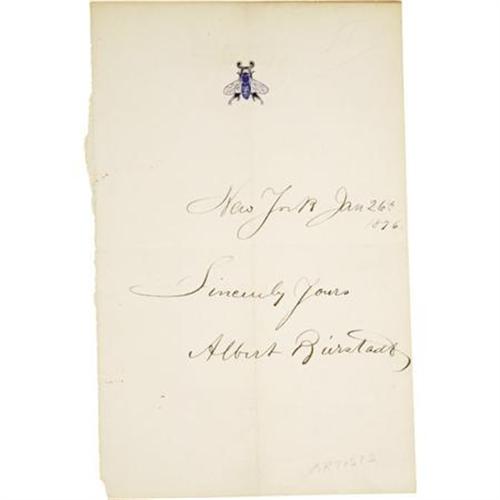 New York Jan 26th
1876
Sincerely Yours
Albert Bierstadt
ARTISTS